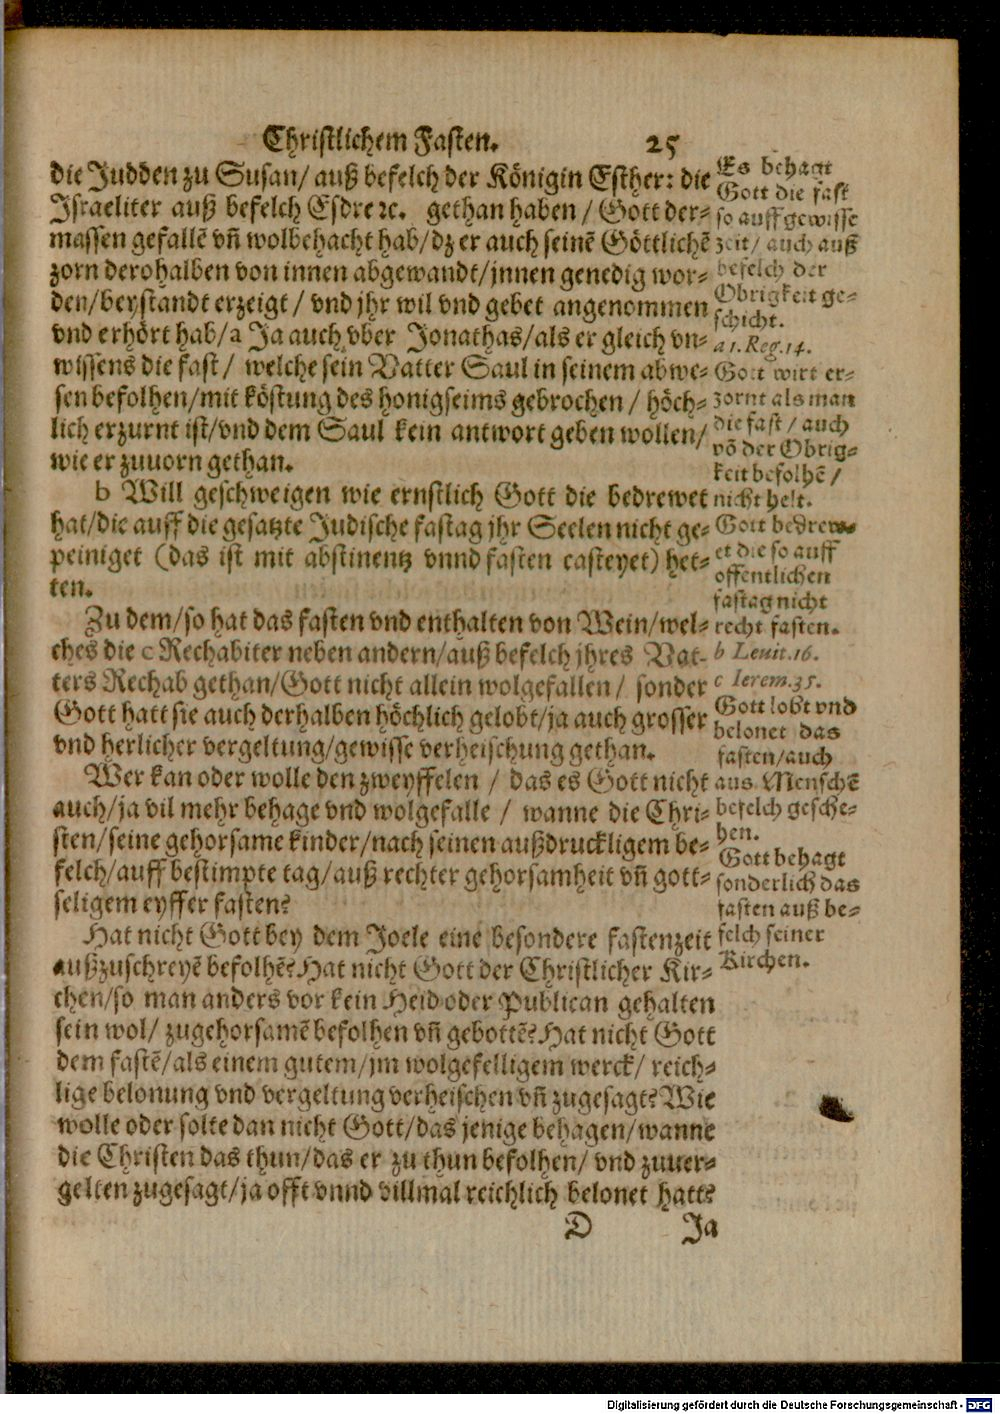 Christlichem Fasten. 25
die Judden zu Susan/ auß befelch der Königin Esther: die
Israeliter auß befelch Esdre ꝛc. gethan haben / Gott der⸗
massen gefallē vn̄ wolbehacht hab/dz er auch seinē Göttlichē
zorn derohalben von innen abgewandt/jnnen genedig wor⸗
den/beystandt erzeigt / vnd jhr wil vnd gebet angenommen
vnd erhört hab/a Ja auch vber Jonathas/als er gleich vn⸗
wissens die fast/ welche sein Vatter Saul in seinem abwe⸗
sen befolhen/mit köstung des honigseims gebrochen / höch⸗
lich erzurnt ist/vnd dem Saul kein antwort geben wollen/
wie er zuuorn gethan.
b Will geschweigen wie ernstlich Gott die bedrewet
hat/die auff die gesatzte Judische fastag jhr Seelen nicht ge⸗
peiniget (das ist mit abstinentz vnnd fasten casteyet) het⸗
ten.
Zu dem/so hat das fasten vnd enthalten von Wein/wel⸗
ches die c Rechabiter neben andern/auß befelch jhres Vat⸗
ters Rechab gethan/Gott nicht allein wolgefallen/ sonder
Gott hatt sie auch derhalben höchlich gelobt/ja auch grosser
vnd herlicher vergeltung/gewisse verheischung gethan.
Wer kan oder wolle den zweyffelen / das es Gott nicht
auch/ja vil mehr behage vnd wolgefalle / wanne die Chri⸗
sten/seine gehorsame kinder/nach seinen außdruckligem be⸗
felch/auff bestimpte tag/auß rechter gehorsamheit vn̄ gott⸗
seligem eyffer fasten?
Hat nicht Gott bey dem Joele eine besondere fastenzeit
außzuschreyē befolhē? Hat nicht Gott der Christlicher Kir⸗
chen/so man anders vor kein Heid oder Publican gehalten
sein wol/ zugehorsamē befolhen vn̄ gebottē? Hat nicht Gott
dem fastē/als einem gutem/jm wolgefelligem werck/ reich⸗
lige belonung vnd vergeltung verheischen vn̄ zugesagt? Wie
wolle oder solte dan nicht Gott/das jenige behagen/wanne
die Christen das thun/das er zu thun befolhen/ vnd zuuer⸗
gelten zugesagt/ja offt vnnd villmal reichlich belonet hatt?
D Ja
Es behagt
Gott die fast
so auff gewisse
zeit/ auch auß
befelch der
Obrigkeit ge⸗
schicht.
a 1. Reg. 14.
Gott wirt er⸗
zornt als man
die fast / auch
vō der Obrig⸗
keit befolhē /
nicht helt.
Gott bedrew⸗
et die so auff
offentlichen
fastag nicht
recht fasten.
b Leuit. 16.
c Ierem. 35.
Gott lobt vnd
belonet das
fasten/auch
aus Menschē
befelch gesche⸗
hen.
Gott behagt
sonderlich das
fasten auß be⸗
felch seiner
Kirchen.
Digitalisierung gefördert durch die Deutsche Forschungsgemeinschaft - DFG